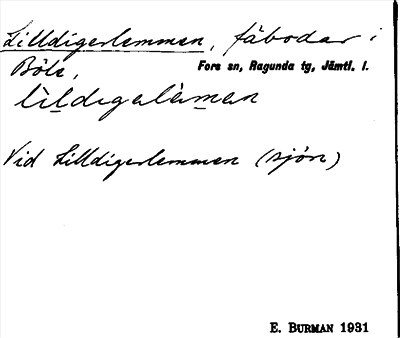 Lilldigerlemmen, fäbodar i
Böle, Fors sn, Ragunda tg, Jämtl. l.
lìldigəlèmən
Vid Lilldigerlemmen (sjön)
E. BURMAN 1931